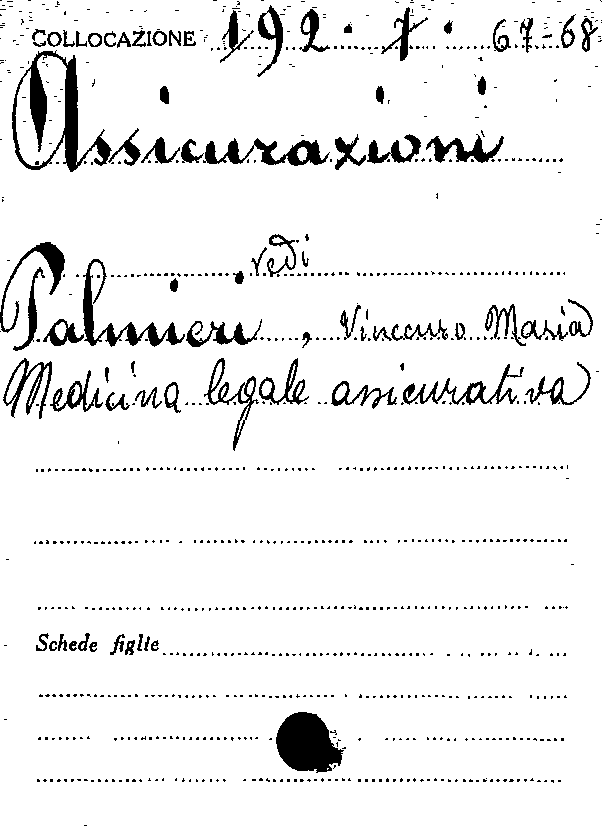 COLLOCAZIONE 192. 7. 67-68
Assicurazioni
vedi
Palmieri, Vincenzo Maria
Medicina legale assicurativa
Schede figlie